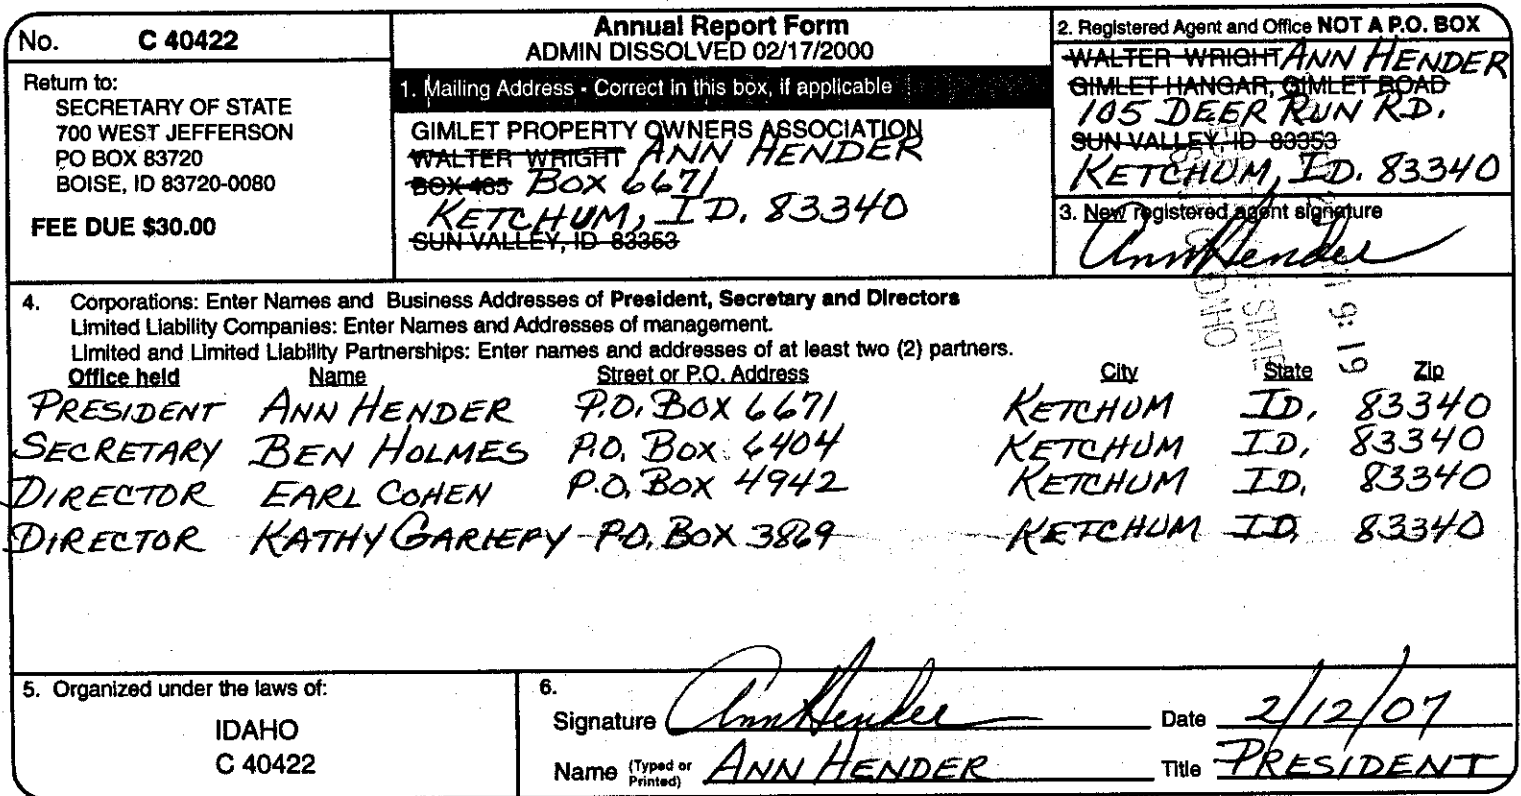 No. C 40422
Return to:
SECRETARY OF STATE
700 WEST JEFFERSON
PO BOX 83720
BOISE, ID 83720-0080
FEE DUE $30.00
Annual Report Form
ADMIN DISSOLVED 02/17/2000
1. Mailing Address - Correct in this box, if applicable
GIMLET PROPERTY OWNERS ASSOCIATION
WALTER WRIGHT ANN HENDER
BOX 485 BOX 6671
KETCHUM, ID. 83340
SUN VALLEY, ID 83353
2. Registered Agent and Office NOT A P.O. BOX
WALTER WRIGHT ANN HENDER
GIMLET HANGAR, GIMLET ROAD
105 DEER RUN RD.
SUN VALLEY, ID 83353
KETCHUM, ID. 83340
3. New registered agent signature
Ann Hender
9:19
STATE
IDAHO
4. Corporations: Enter Names and Business Addresses of President, Secretary and Directors
Limited Liability Companies: Enter Names and Addresses of management.
Limited and Limited Liability Partnerships: Enter names and addresses of at least two (2) partners.
Office held Name Street or P.O. Address City State Zip
PRESIDENT ANN HENDER P.O. BOX 6671 KETCHUM ID, 83340
SECRETARY BEN HOLMES P.O. BOX 6404 KETCHUM ID, 83340
DIRECTOR EARL COHEN P.O. BOX 4942 KETCHUM ID, 83340
DIRECTOR KATHY GARIEPY P.O. BOX 3869 KETCHUM ID, 83340
5. Organized under the laws of:
IDAHO
C 40422
6.
Signature Ann Hender Date 2/12/07
Name (Typed or Printed) ANN HENDER Title PRESIDENT